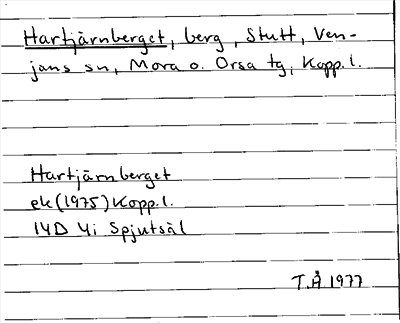 Hartjärnberget, berg, Stutt, Ven-
jans sn, Mora o. Orsa tg, Kopp.l.
Hartjärnberget
ek(1975)Kopp.l.
14D 4i Spjutsäl
T.Å 1977